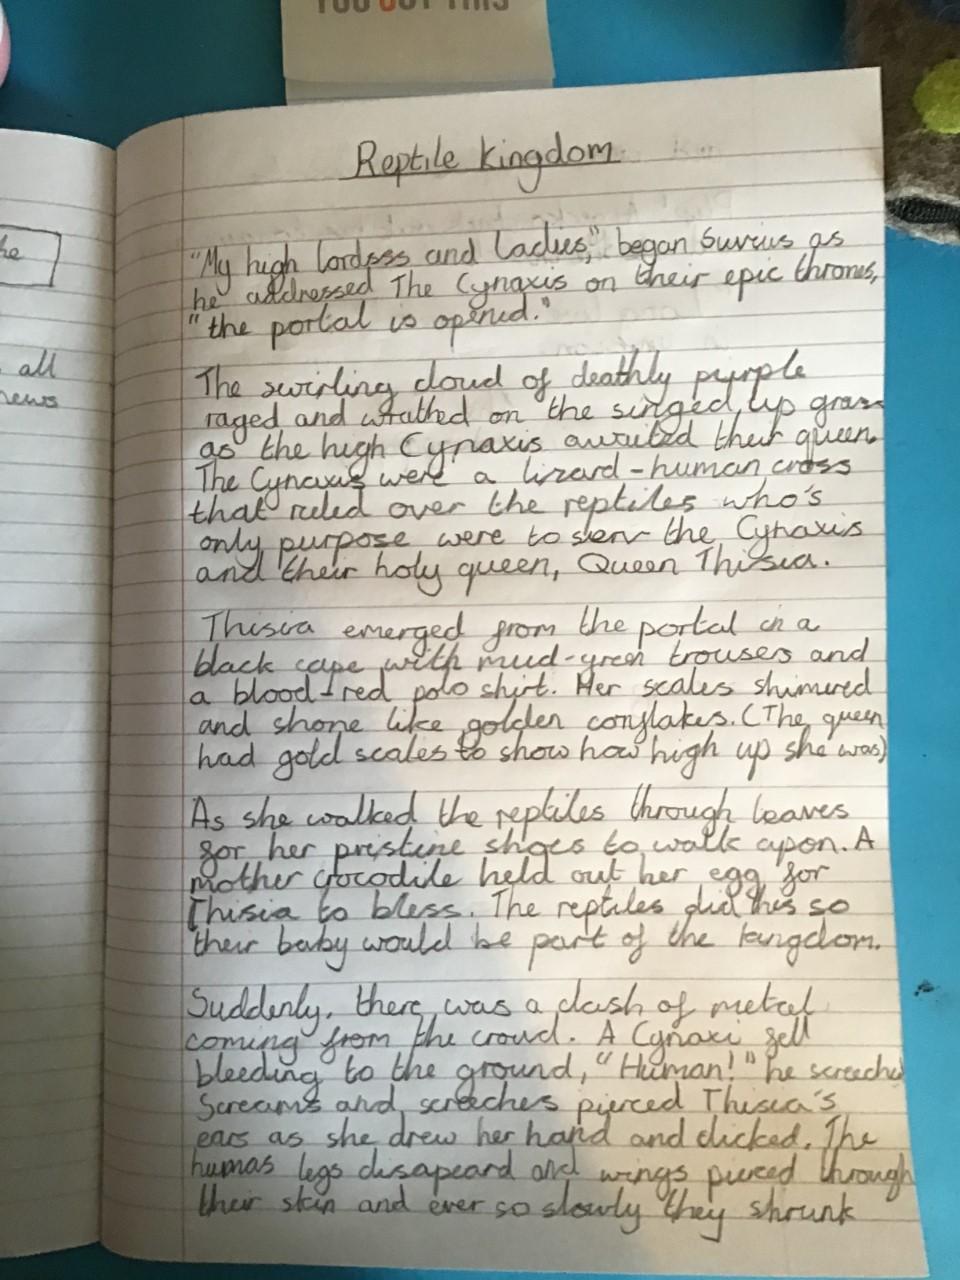 YOU GOT THIS
he
all
news
Reptile kingdom
"My high lordsss and Ladies," began Suvius as
he addressed The Cynaxis on their epic thrones,
"the portal is opened."
The swirling cloud of deathly purple
raged and wrathed on the singed, up grass
as the high Cynaxis awaited their queen.
The Cynaxis were a lizard-human cross
that ruled over the reptiles who's
only purpose were to serv the Cynaxis
and their holy queen, Queen Thisia.
Thisia emerged from the portal in a
black cape with mud-green trousers and
a blood-red polo shirt. Her scales shimered
and shone like golden cornflakes. (The queen
had gold scales to show how high up she was)
As she walked the reptiles through leaves
for her pristine shoes to walk apon. A
mother crocodile held out her egg for
Thisia to bless. The reptiles did this so
their baby would be part of the kingdom.
Suddenly, there was a clash of metal
coming from the crowd. A Cynaxi fell
bleeding to the ground, "Human!" he screeched
Screams and screeches pierced Thisia's
ears as she drew her hand and clicked. The
humas legs disapeard and wings pierced through
their skin and ever so slowly they shrunk